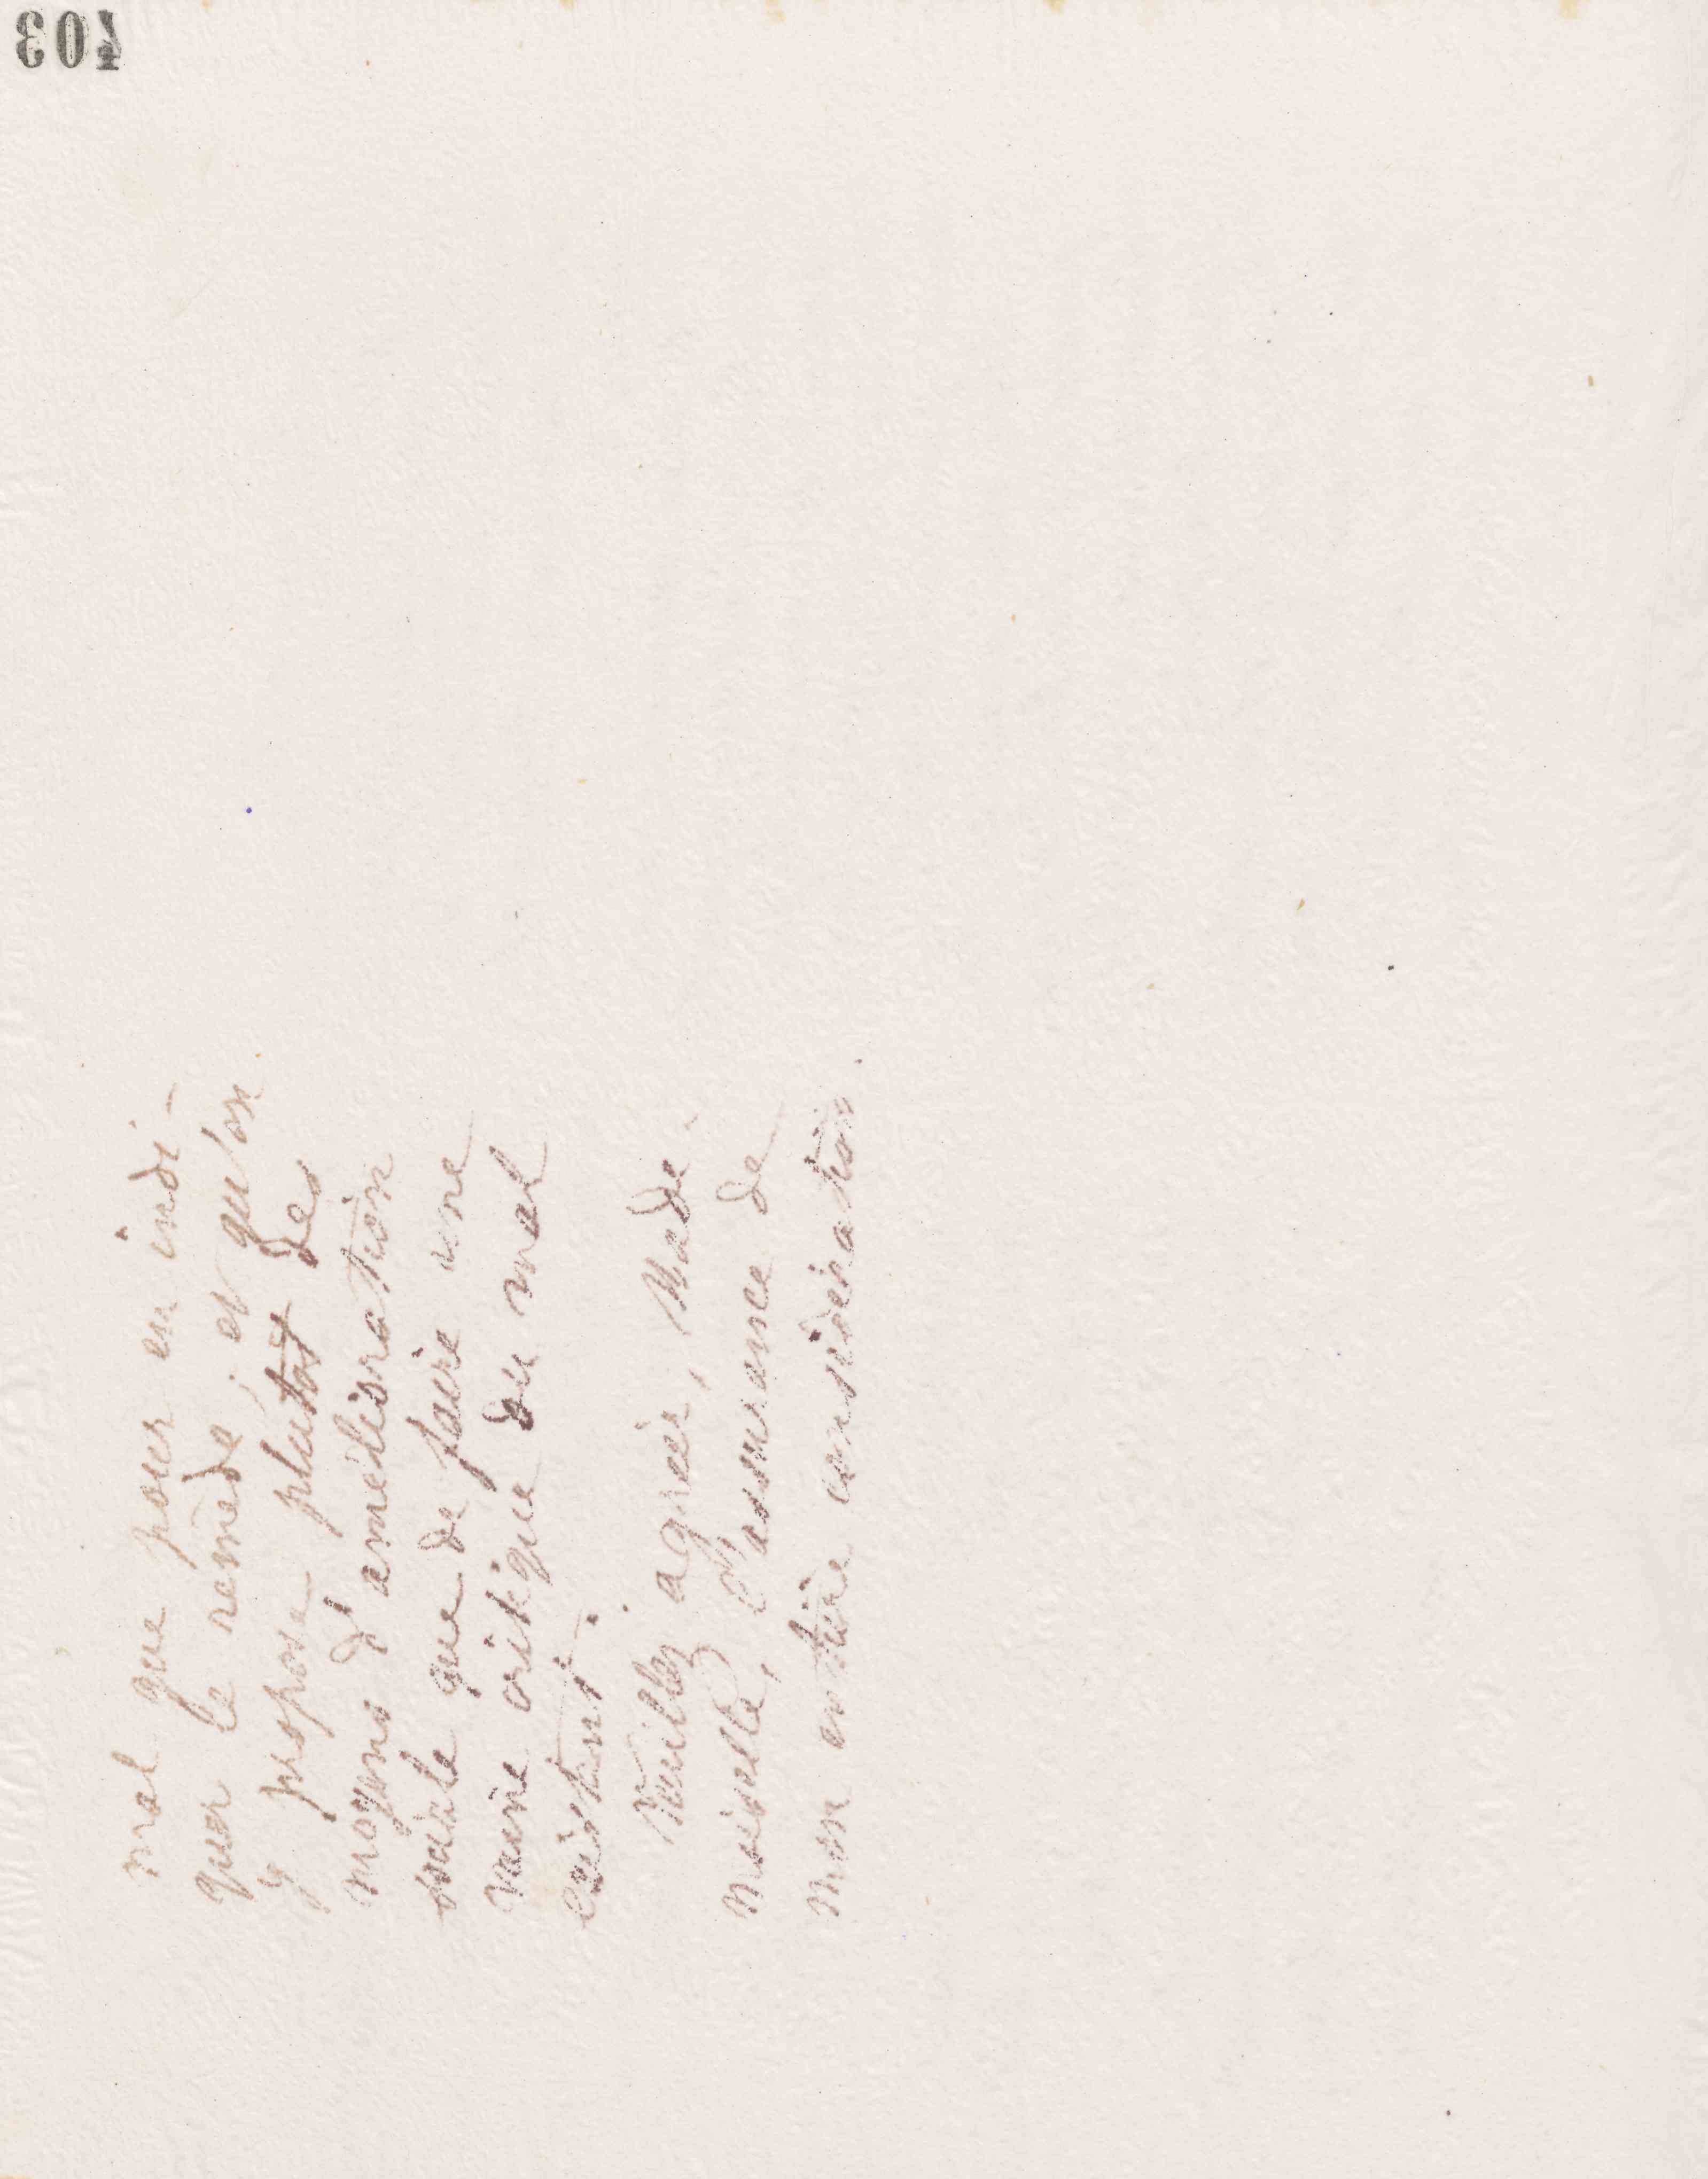 403
mal que pour en indi-
quer le remède, et qu'on
y propose plutôt des
moyens d'amélioration
sociale que de faire une
vaine critique du mal
existant.
Veuillez agréer, Made-
moiselle, l'assurance de
mon entière considération.